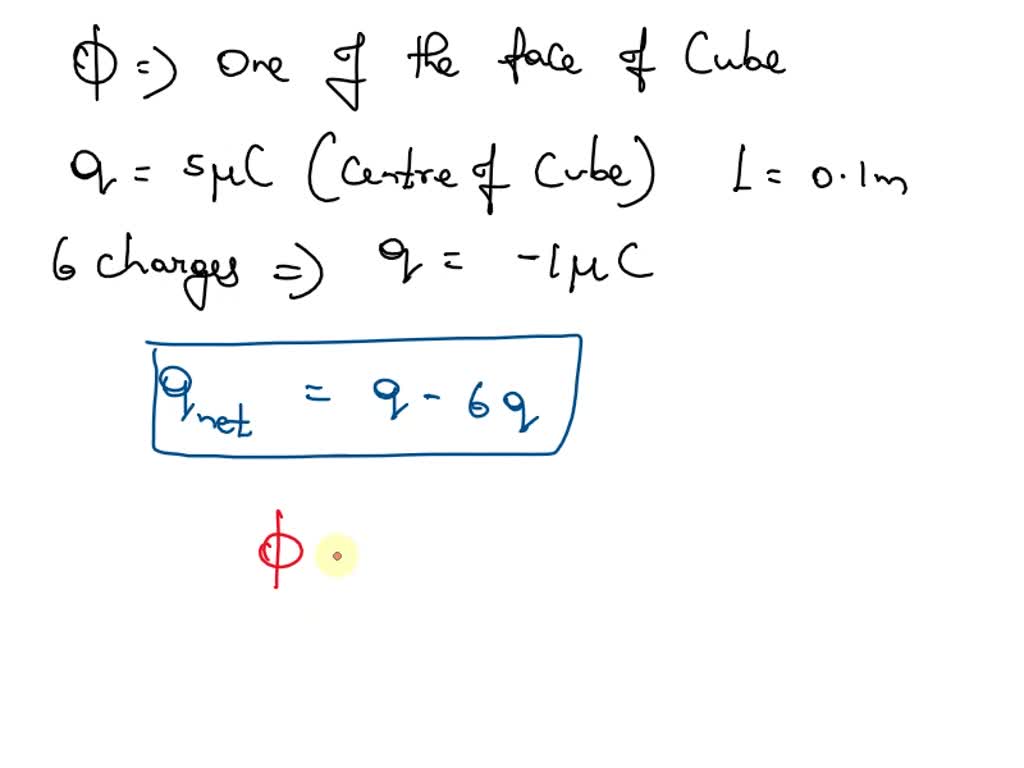 ϕ => One of the face of Cube
q = 5μC (Centre of Cube) L = 0.1m
6 charges => q = -1μC
q_net = q - 6q
ϕ